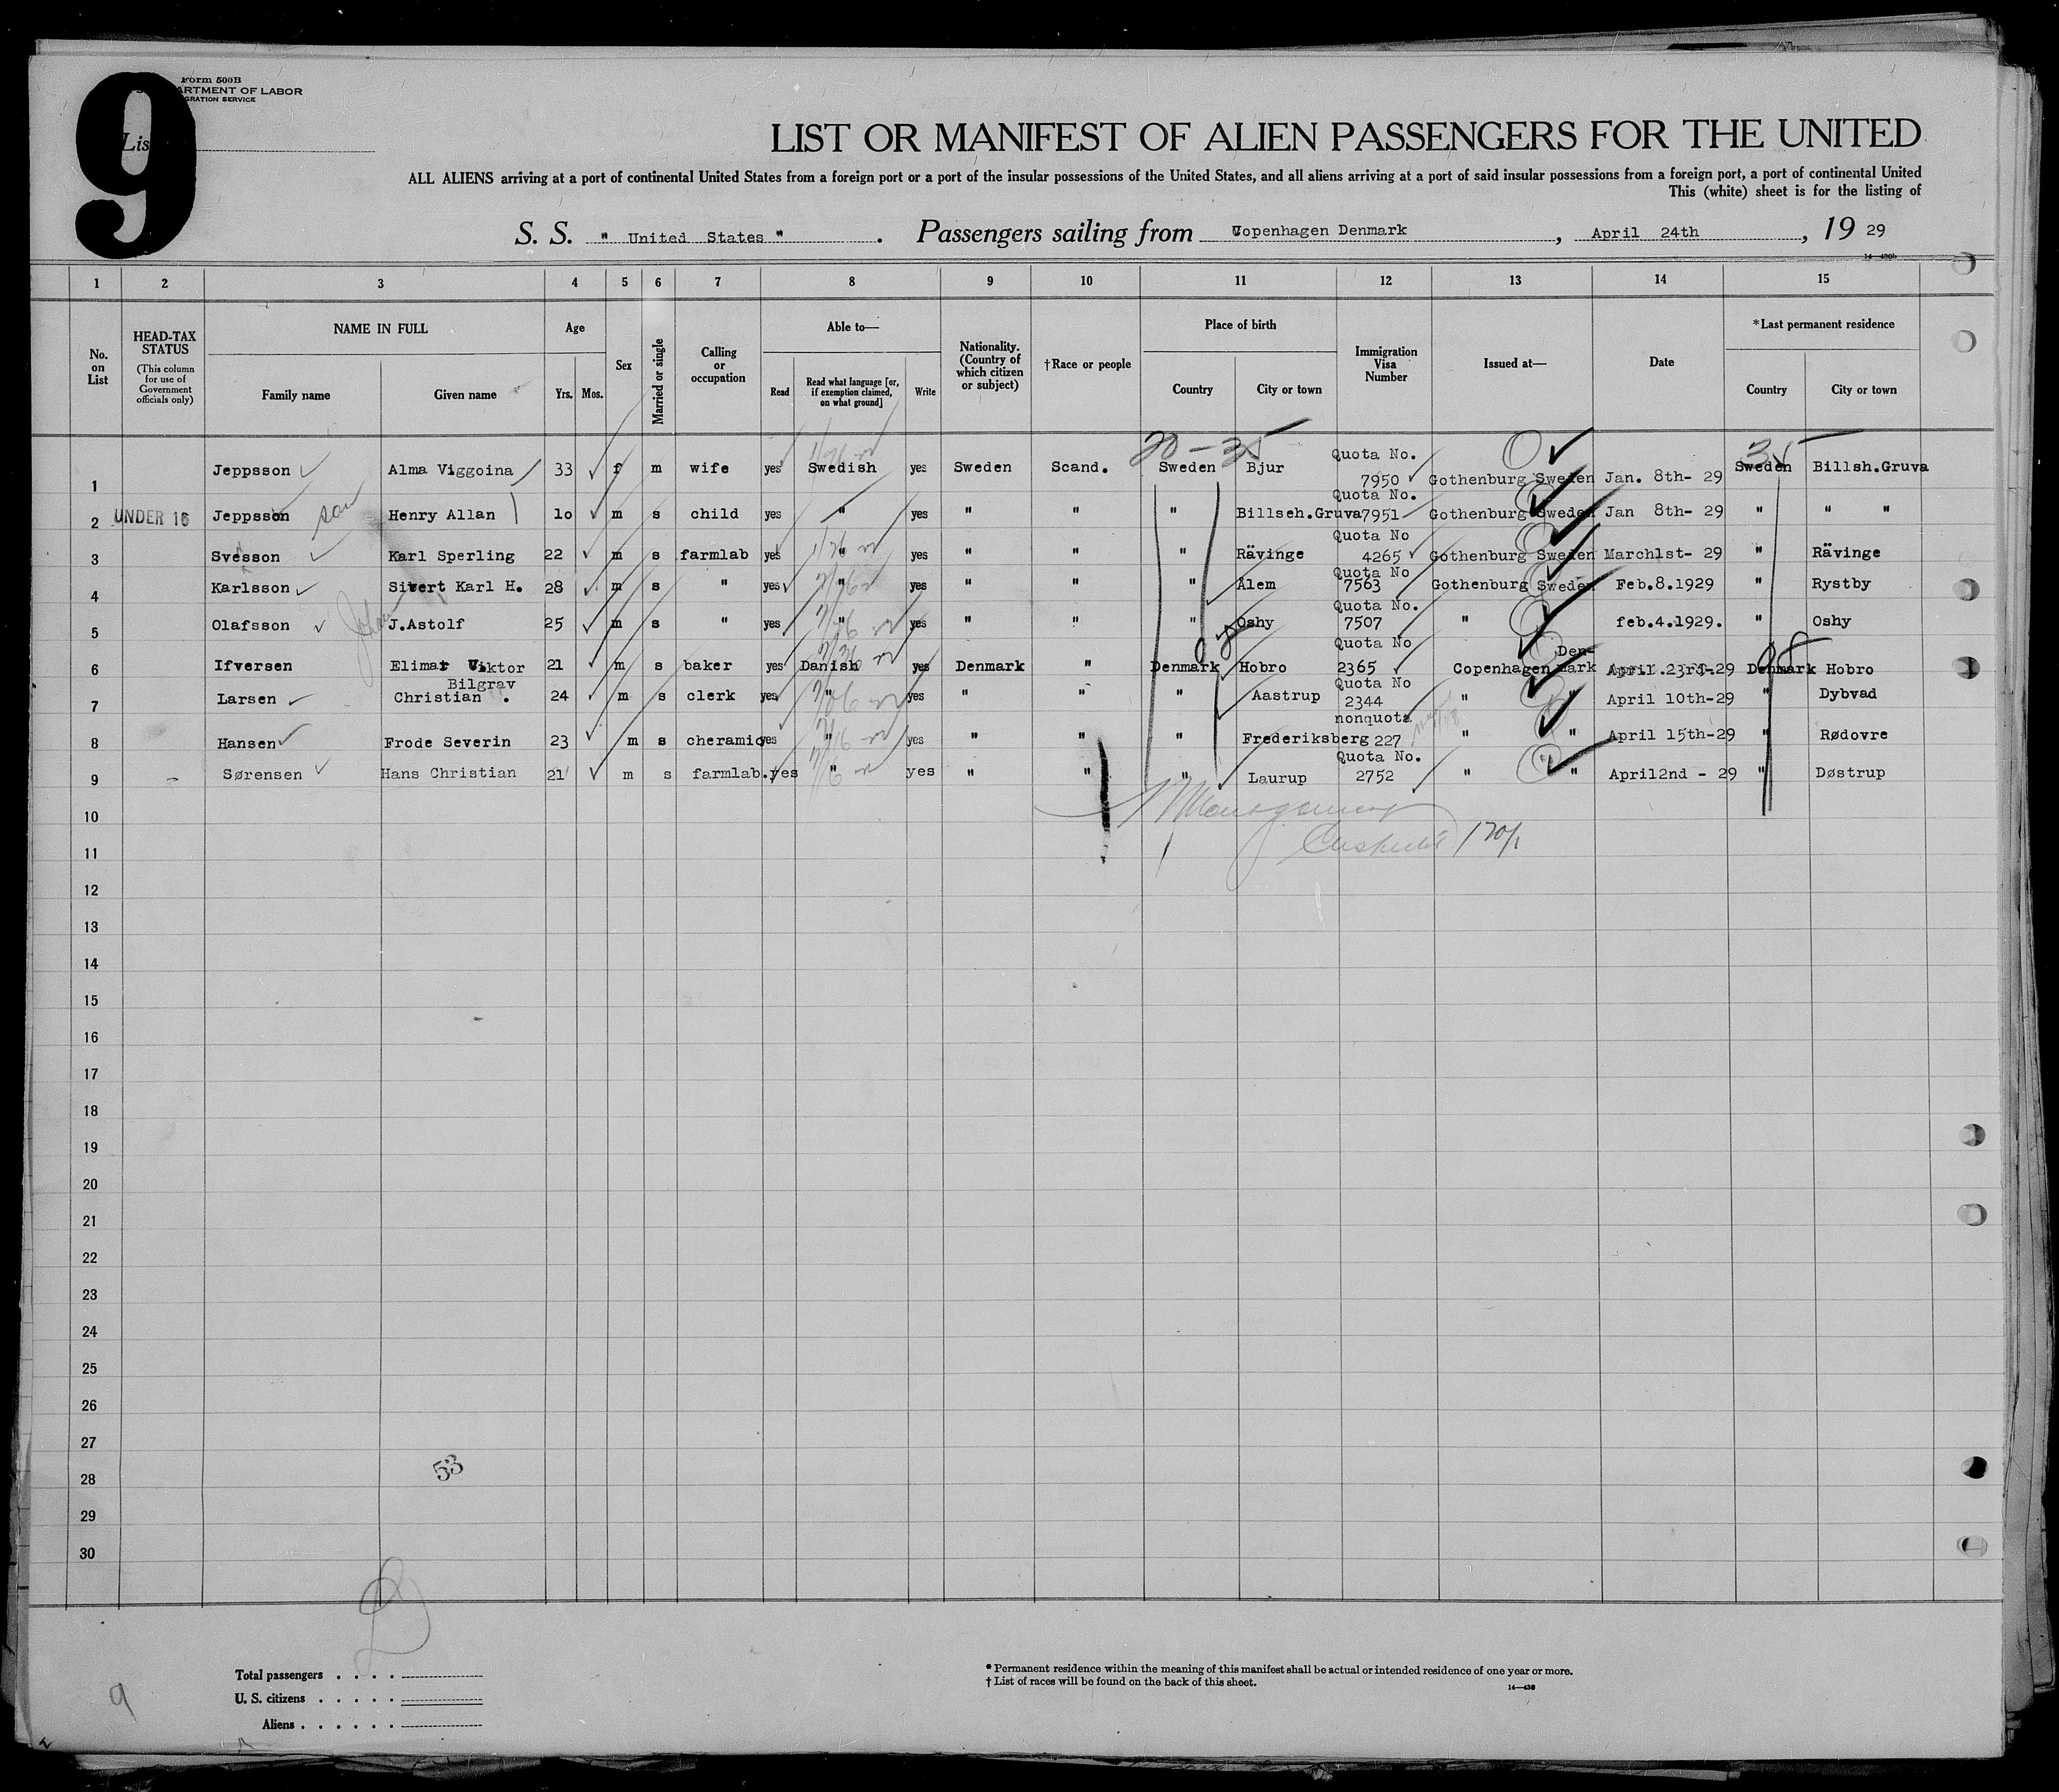 9
Form 500B
ARTMENT OF LABOR
GRATION SERVICE
Lis
LIST OR MANIFEST OF ALIEN PASSENGERS FOR THE UNITED
ALL ALIENS arriving at a port of continental United States from a foreign port or a port of the insular possessions of the United States, and all aliens arriving at a port of said insular possessions from a foreign port, a port of continental United
This (white) sheet is for the listing of
S. S. " United States " . Passengers sailing from Copenhagen Denmark , April 24th , 19 29
14—430b
1 2 3 4 5 6 7 8 9 10 11 12 13 14 15
No. on List
HEAD-TAX STATUS
(This column for use of Government officials only)
NAME IN FULL
Family name Given name
Age
Yrs. Mos.
Sex
Married or single
Calling or occupation
Able to—
Read Read what language [or, if exemption claimed, on what ground] Write
Nationality. (Country of which citizen or subject)
†Race or people
Place of birth
Country City or town
Immigration Visa Number
Issued at—
Date
*Last permanent residence
Country City or town
20-35 35
1 Jeppsson Alma Viggoina 33 f m wife yes Swedish yes Sweden Scand. Sweden Bjur Quota No. 7950 Gothenburg Sweden Jan. 8th- 29 Sweden Billsh.Gruva
2 UNDER 16 Jeppsson son Henry Allan 1o m s child yes " yes " " " Billseh.Gruva Quota No. 7951 Gothenburg Sweden Jan 8th- 29 " " "
3 Svesson Karl Sperling 22 m s farmlab yes " yes " " " Rävinge Quota No 4265 Gothenburg Sweden March1st- 29 " Rävinge
4 Karlsson Sivert Karl H. 28 m s " yes " yes " " " Alem Quota No 7563 Gothenburg Sweden Feb.8.1929 " Rystby
5 Olafsson Johan J.Astolf 25 m s " yes " yes " " " Oshy Quota No. 7507 " feb.4.1929. " Oshy
6 Ifversen Elimar Viktor 21 m s baker yes Danish yes Denmark " Denmark Hobro Quota No 2365 Copenhagen Den-mark April 23rd-29 Denmark Hobro
7 Larsen Christian Bilgrav . 24 m s clerk yes " yes " " " Aastrup Quota No 2344 " " April 10th-29 " Dybvad
8 Hansen Frode Severin 23 m s cheramic yes " yes " " " Frederiksberg nonquota 227 " " April 15th-29 " Rødovre
9 Sørensen Hans Christian 21 m s farmlab. yes " yes " " " Laurup Quota No. 2752 " " April2nd - 29 " Døstrup
10
11
12
13
14
15
16
17
18
19
20
21
22
23
24
25
26
27
28
29
30
53
Total passengers
U. S. citizens
Aliens
9
* Permanent residence within the meaning of this manifest shall be actual or intended residence of one year or more.
† List of races will be found on the back of this sheet.
14—430